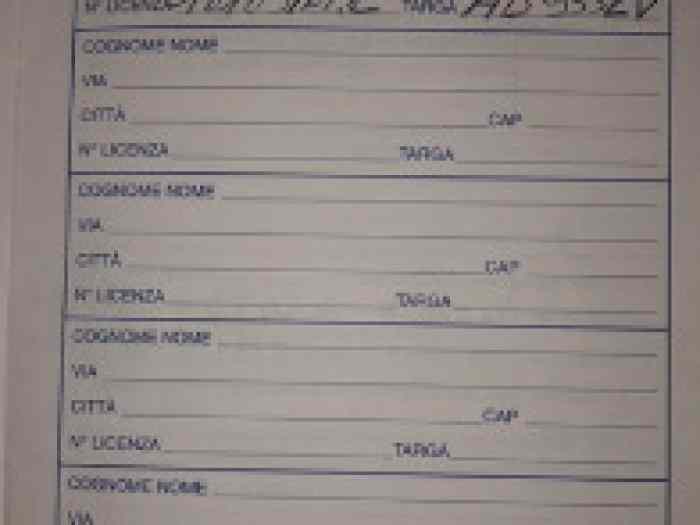 N° LICENZA TARGA
COGNOME NOME
VIA
CITTÀ CAP
N° LICENZA TARGA
COGNOME NOME
VIA
CITTÀ CAP
N° LICENZA TARGA
COGNOME NOME
VIA
CITTÀ CAP
N° LICENZA TARGA
COGNOME NOME
VIA